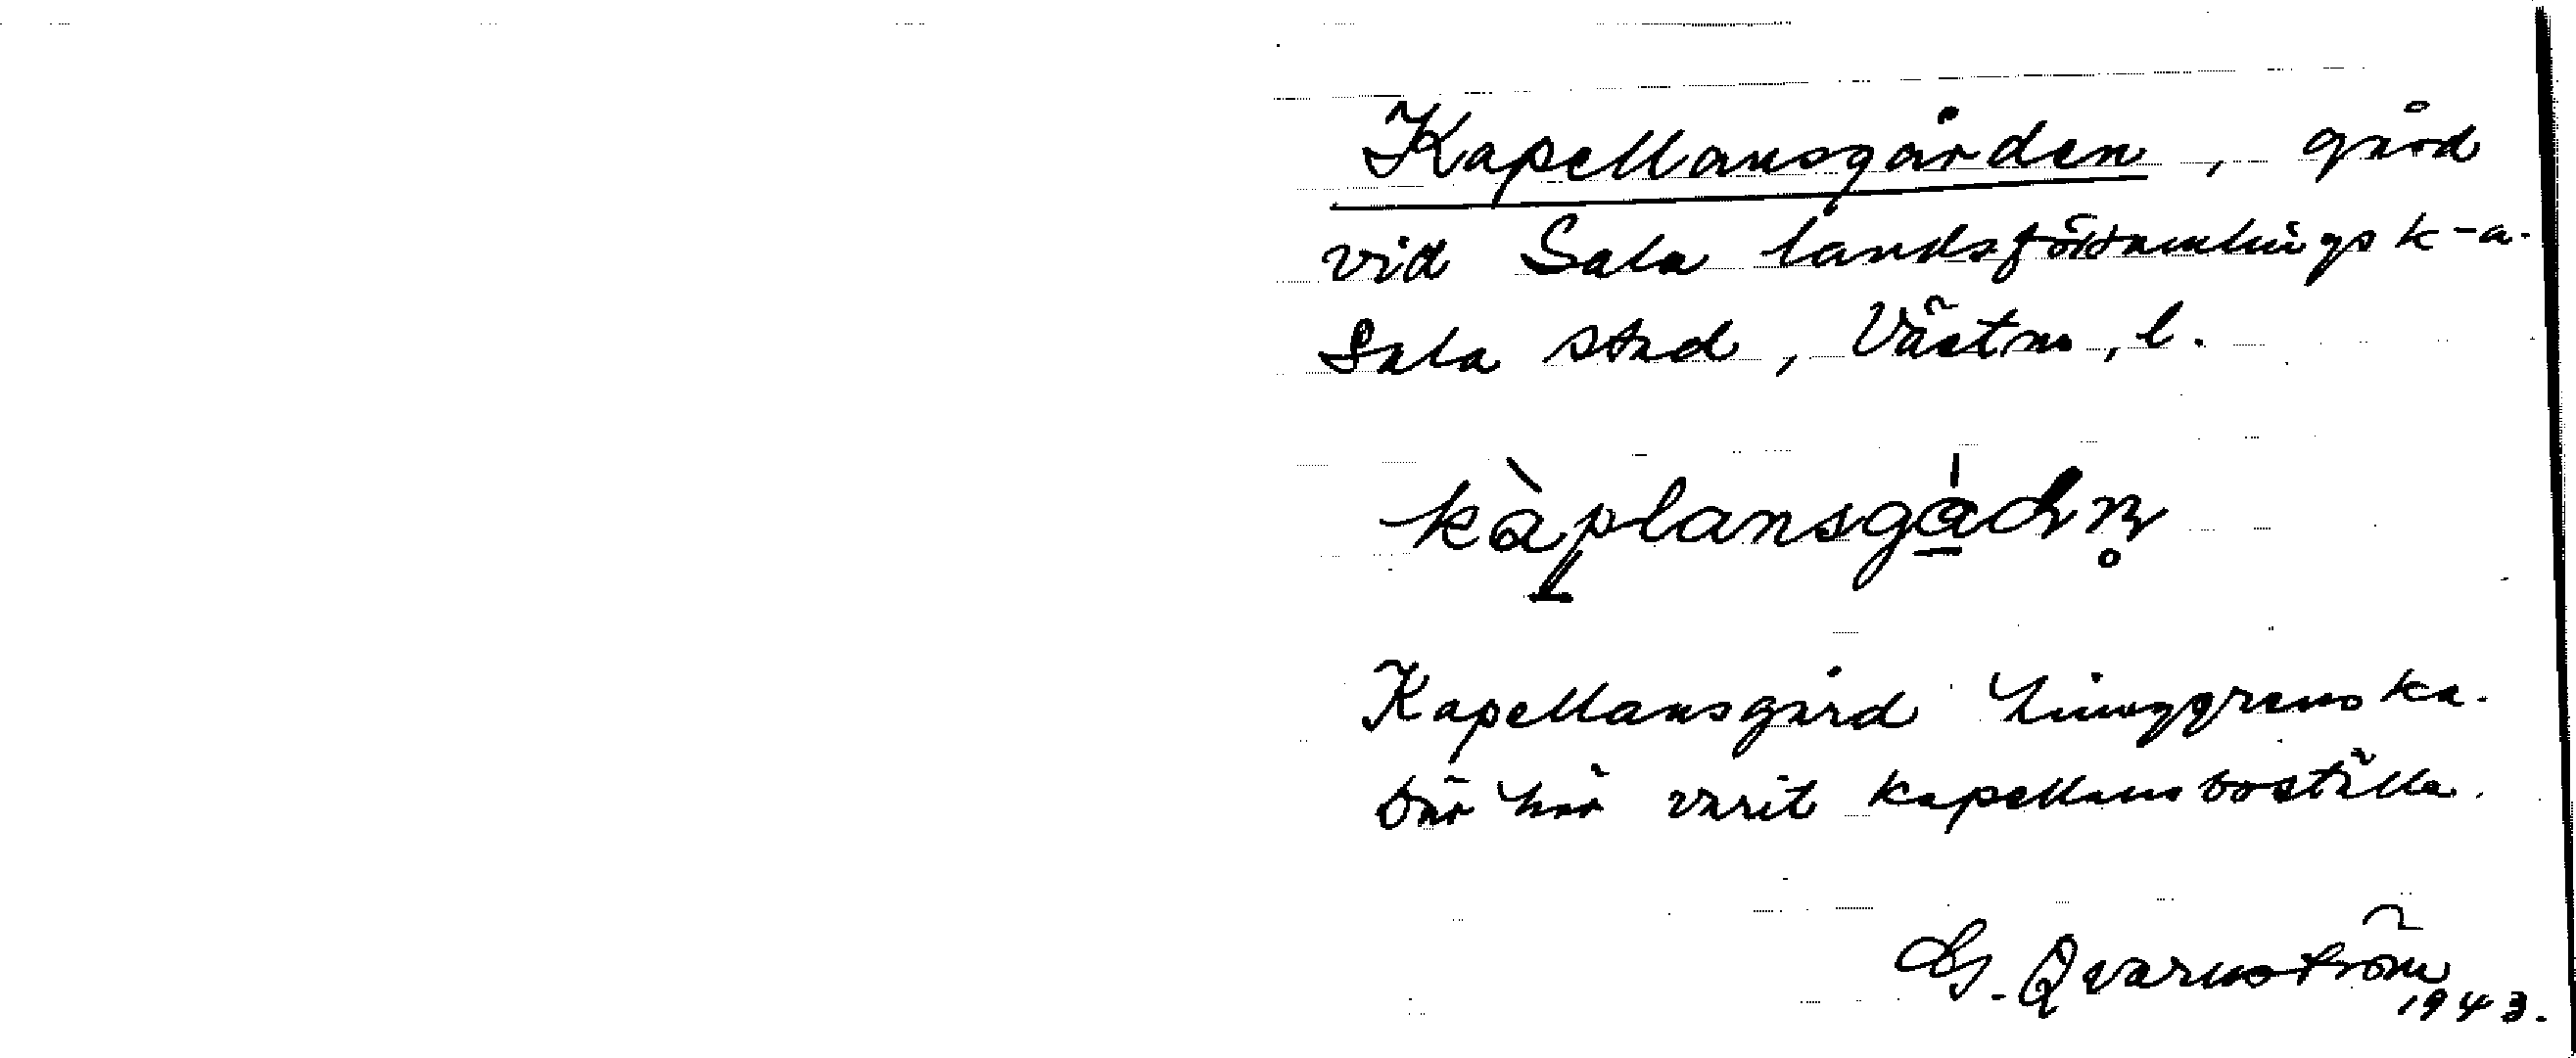 Kapellansgården, gård
vid Sala landsförsamlings k-a.
Sala stad, Västm, l.
kàplansgàdn̥
Kapellansgård Linggrenska.
Där har varit kapellansboställe.
G. Qvarnström
1943.